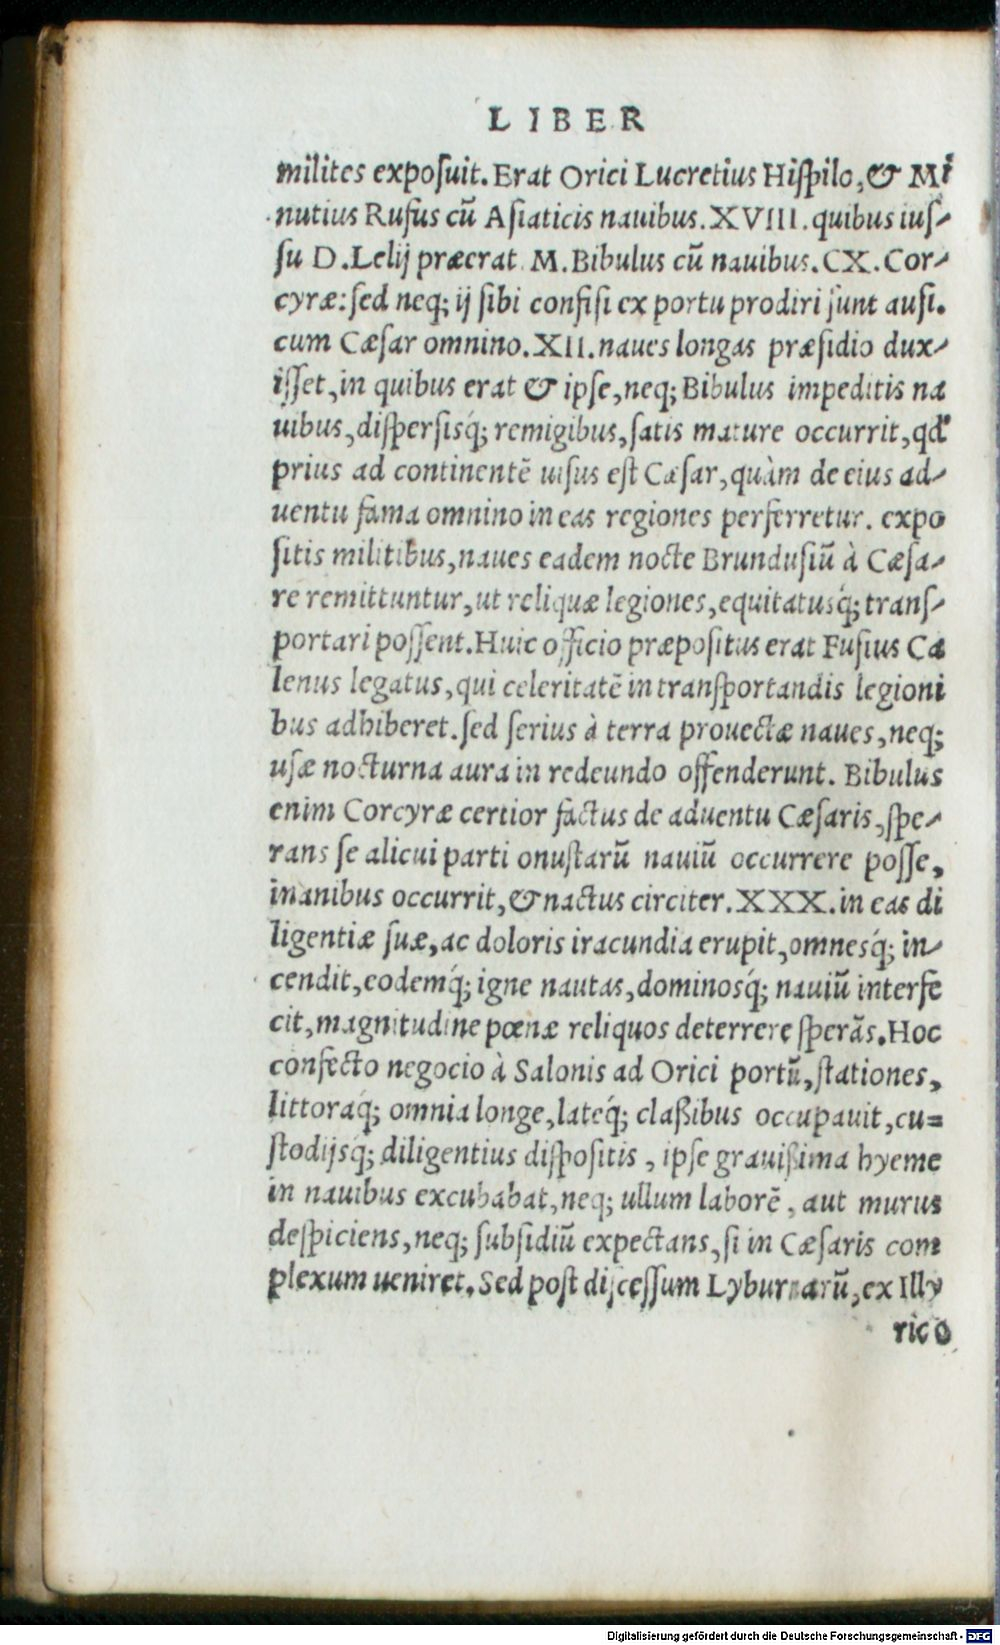 LIBER
milites expoſuit. Erat Orici Lucretius Hiſpilo, & Mi
nutius Rufus cū Aſiaticis nauibus. XVIII. quibus iuſ-
ſu D. Lelij præerat. M. Bibulus cū nauibus. CX. Cor-
cyræ: ſed neq; ij ſibi confiſi ex portu prodiri ſunt auſi.
cum Cæſar omnino. XII. naues longas præſidio dux-
iſſet, in quibus erat & ipſe, neq; Bibulus impeditis na
uibus, diſperſisq́; remigibus, ſatis mature occurrit, qd'
prius ad continentē uiſus eſt Cæſar, quàm de eius ad-
uentu fama omnino in eas regiones perferretur. expo
ſitis militibus, naues eadem nocte Brunduſiū à Cæſa-
re remittuntur, ut reliquæ legiones, equitatusq́; tranſ-
portari poſſent. Huic officio præpoſitus erat Fuſius Ca
lenus legatus, qui celeritatē in tranſportandis legioni
bus adhiberet. ſed ſerius à terra prouectæ naues, neq;
uſæ nocturna aura in redeundo offenderunt. Bibulus
enim Corcyræ certior factus de aduentu Cæſaris, ſpe-
rans ſe alicui parti onuſtarū nauiū occurrere poſſe,
inanibus occurrit, & nactus circiter. XXX. in eas di
ligentiæ ſuæ, ac doloris iracundia erupit, omnesq́; in-
cendit, eodemq́; igne nautas, dominosq́; nauiū interfe
cit, magnitudine pœnæ reliquos deterrere ſperās. Hoc
confecto negocio à Salonis ad Orici portū, ſtationes,
littoraq́; omnia longe, lateq́; claßibus occupauit, cu=
ſtodijsq́; diligentius diſpoſitis, ipſe grauißima hyeme
in nauibus excubabat, neq; ullum laborē, aut murus
deſpiciens, neq; ſubſidiū expectans, ſi in Cæſaris com
plexum ueniret. Sed poſt diſceſſum Lyburnarū, ex Illy
rico
Digitalisierung gefördert durch die Deutsche Forschungsgemeinschaft - DFG